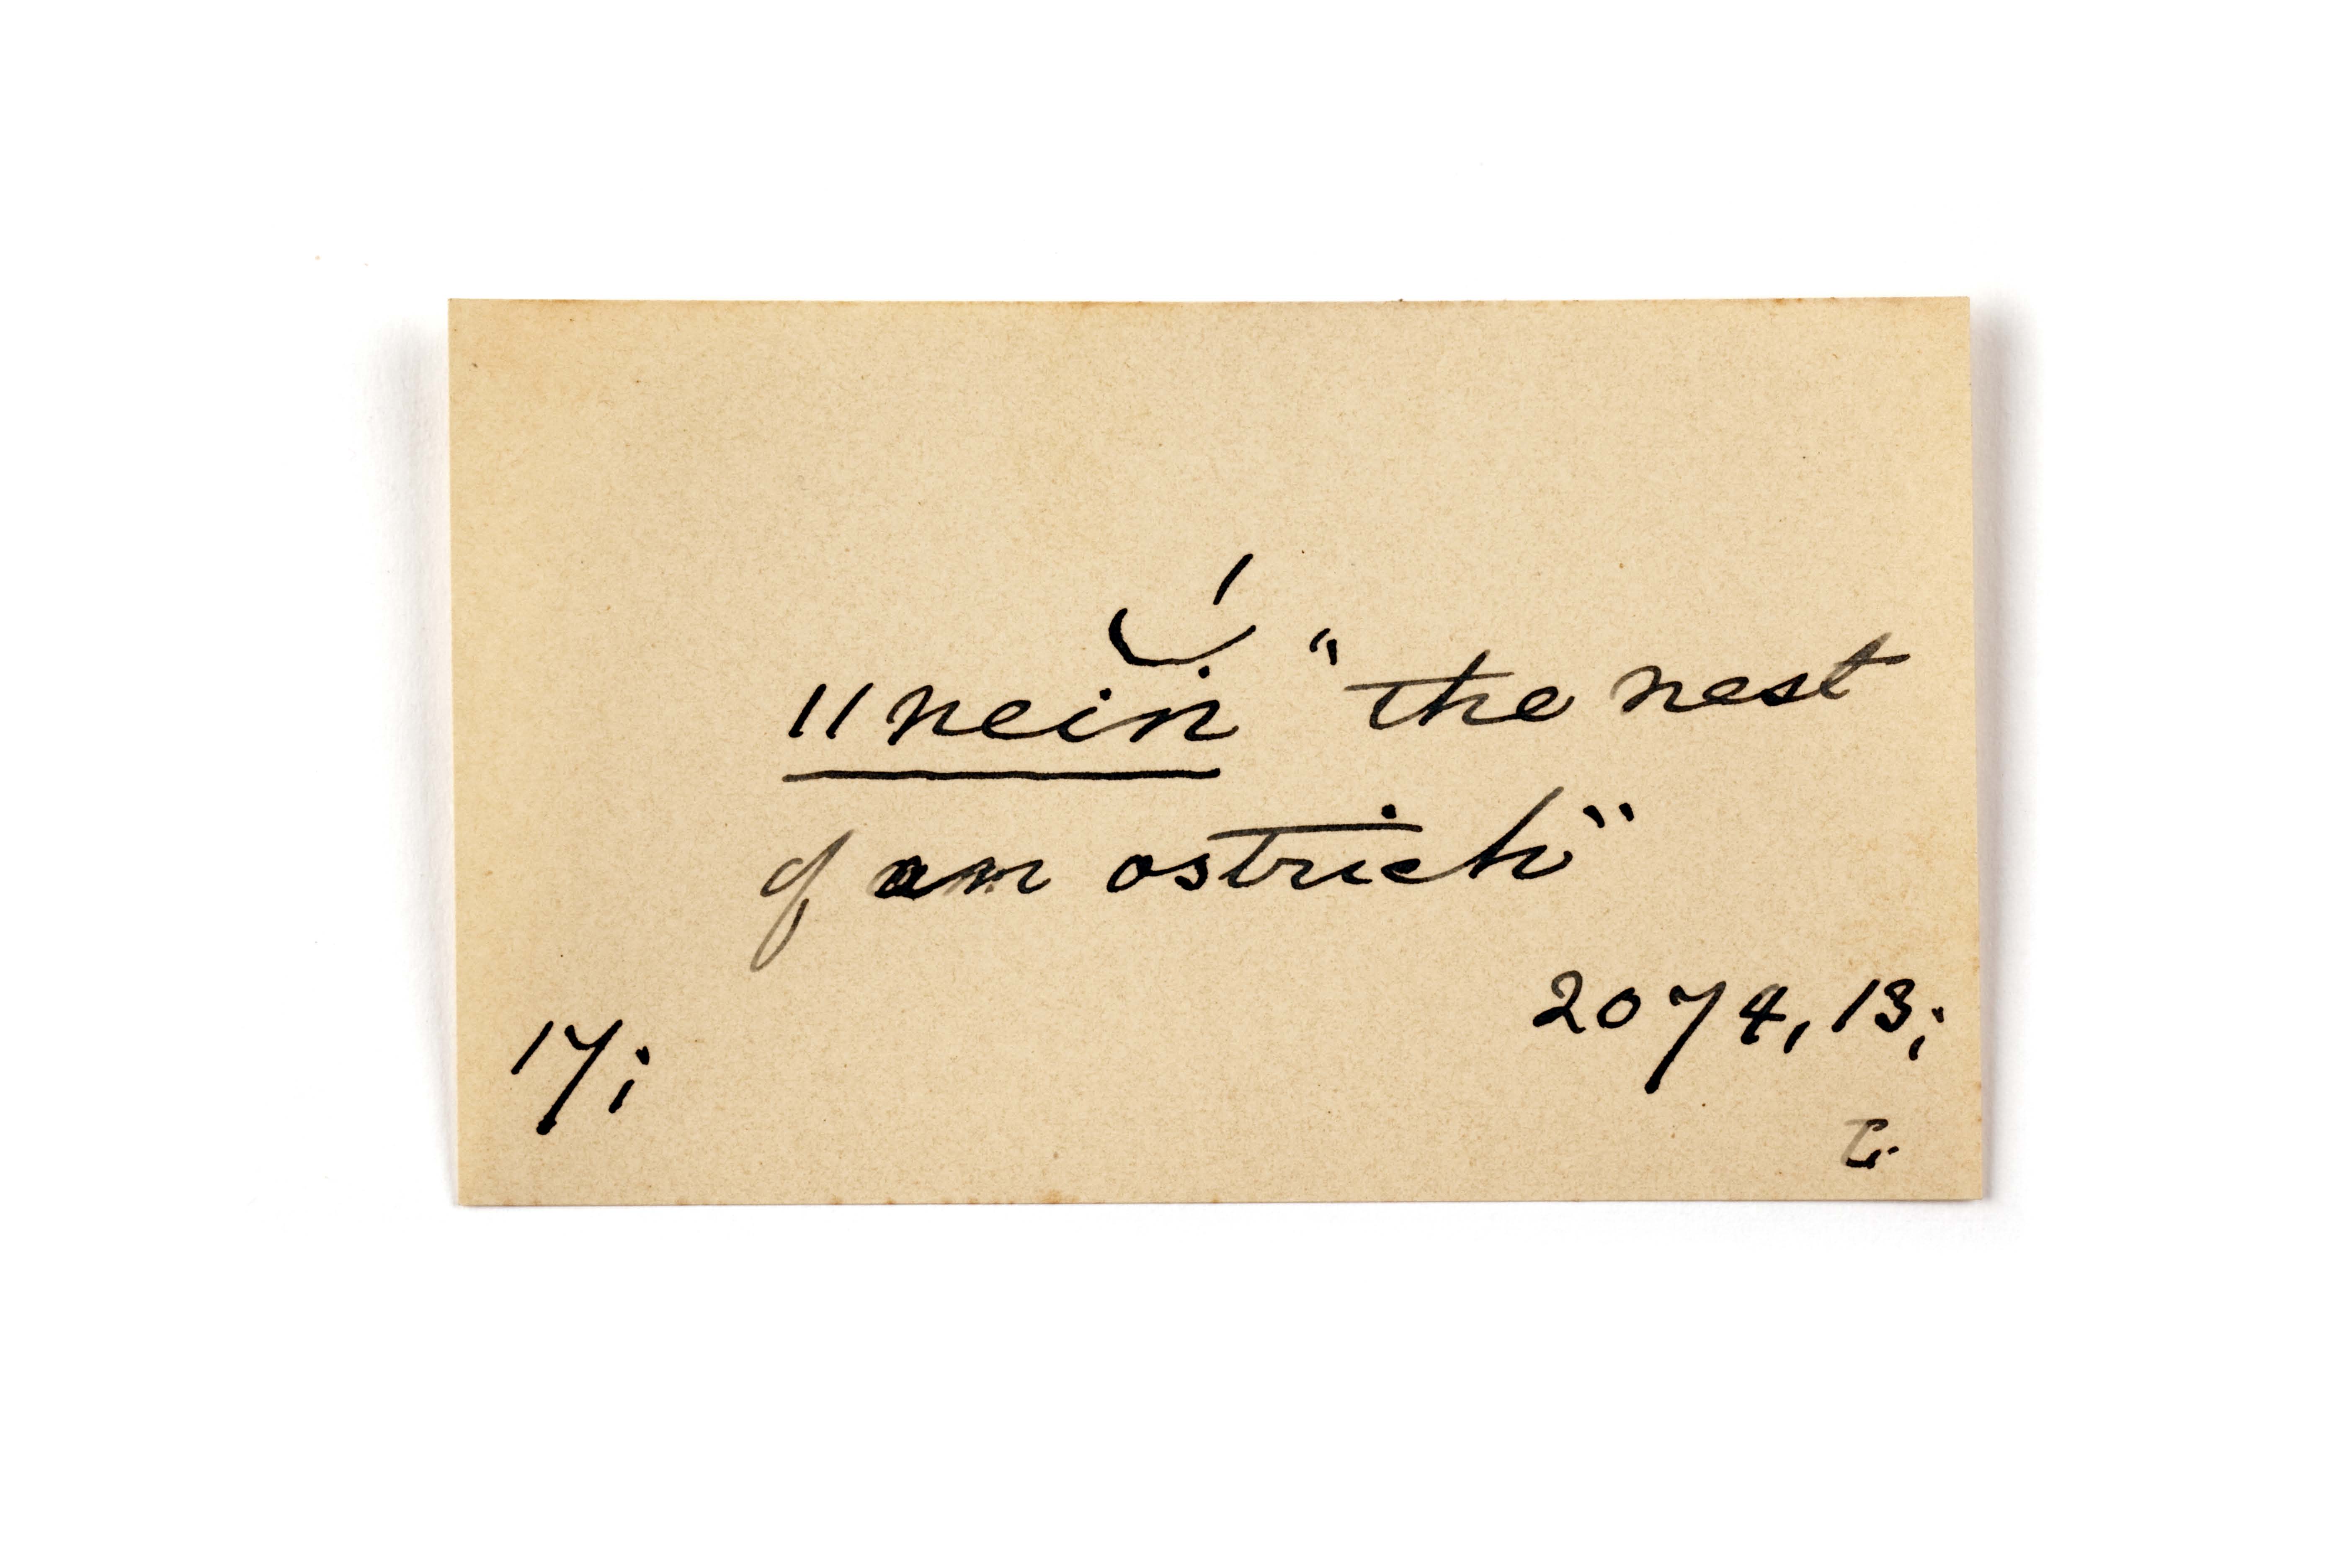 ǁnein̆́ "the nest
of an ostrich"
2074, 13;
17;